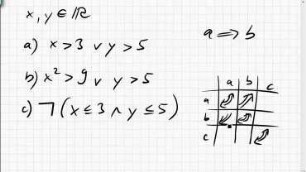 x, y ∈ ℝ
a) x > 3 ∨ y > 5
b) x² > 9 ∨ y > 5
c) ¬(x ≤ 3 ∧ y ≤ 5)
a ⟹ b
a b c
a
b
c